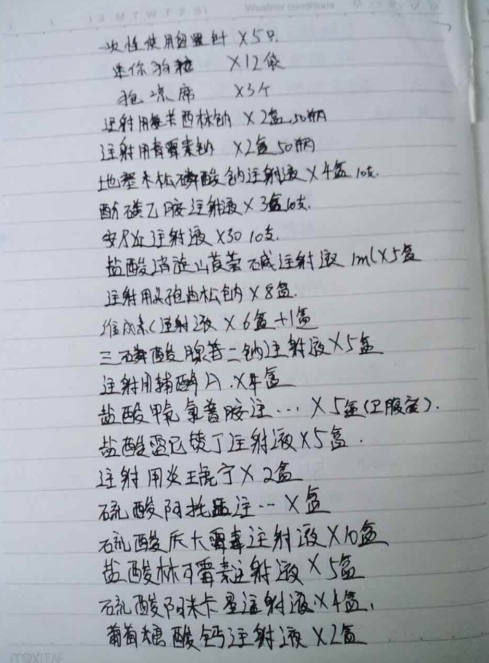 一次性使用留置针 X5只
迷你狗粮 X12袋
狗凉席 X3个
注射用氨苄西林钠 X2盒 50瓶
注射用青霉素钠 X2盒 50瓶
地塞米松磷酸钠注射液 X4盒 10支
酚磺乙胺注射液 X3盒 10支
注射液 X30 10支
盐酸消旋山莨菪碱注射液 1ml X5盒
注射用头孢曲松钠 X8盒.
维生素C注射液 X6盒+1盒
三磷酸腺苷二钠注射液X5盒
注射用辅酶A X盒
盐酸甲氧氯普胺注… X5盒
盐酸雷尼替丁注射液X5盒.
注射用炎琥宁X2盒
硫酸阿托品注… X盒
硫酸庆大霉素注射液X10盒
盐酸林可霉素注射液X5盒
硫酸阿米卡星注射液X4盒,
葡萄糖酸钙注射液X2盒